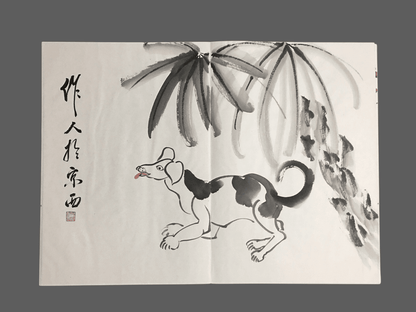 作人於京西